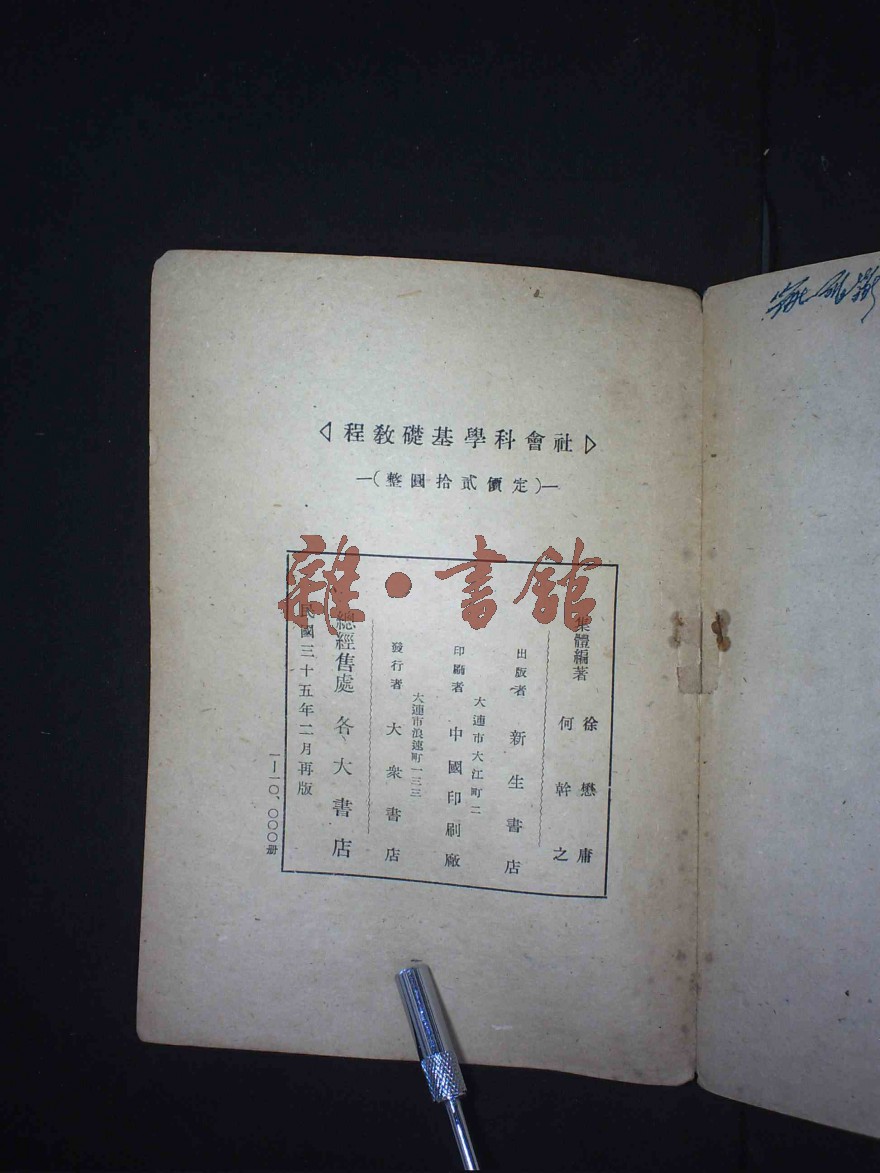 社會科學基礎教程
(定價貳拾圓整)
集體編著 徐懋庸
何幹之
出版者 新生書店
大連市大江町二
印刷者 中國印刷廠
大連市浪速町一三三
發行者 大衆書店
總經售處 各大書店
民國三十五年二月再版
一—一〇、〇〇〇册
雜·書館